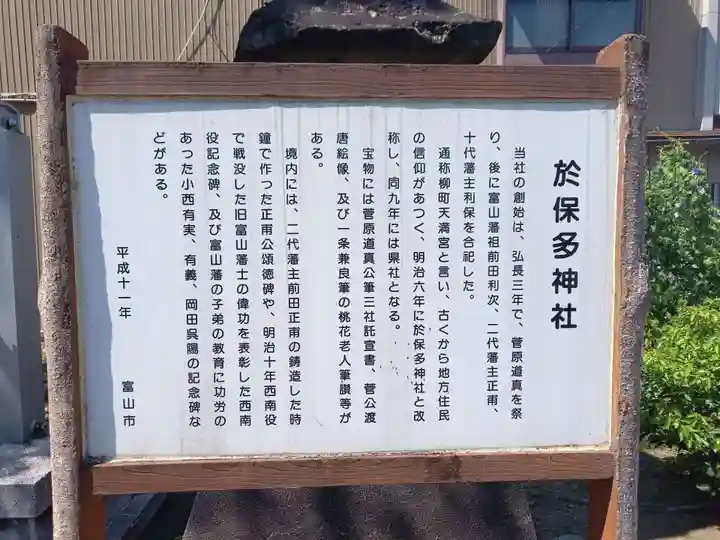 於保多神社
当社の創始は、弘長三年で、菅原道真を祭
り、後に富山藩祖前田利次、二代藩主正甫、
十代藩主利保を合祀した。
通称柳町天満宮と言い、古くから地方住民
の信仰があつく、明治六年に於保多神社と改
称し、同九年には県社となる。
宝物には菅原道真公筆三社託宣書、菅公渡
唐絵像、及び一条兼良筆の桃花老人筆讃等が
ある。
境内には、二代藩主前田正甫の鋳造した時
鐘で作った正甫公頌徳碑や、明治十年西南役
で戦没した旧富山藩士の偉功を表彰した西南
役記念碑、及び富山藩の子弟の教育に功労の
あった小西有実、有義、岡田呉陽の記念碑な
どがある。
平成十一年 富山市